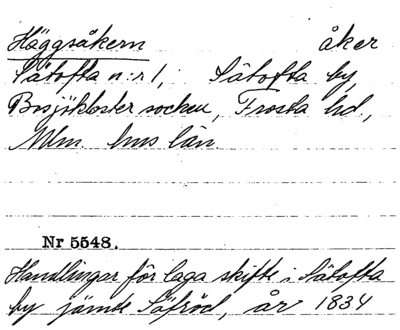 Häggsåkern åker
Sätofta n:r 1, Sätofta by,
Bosjökloster socken, Frosta hd.,
Mlm. hus län.
Nr 5548.
Handlingar för laga skifte i Sätofta
by jämte Säfröd, år 1834